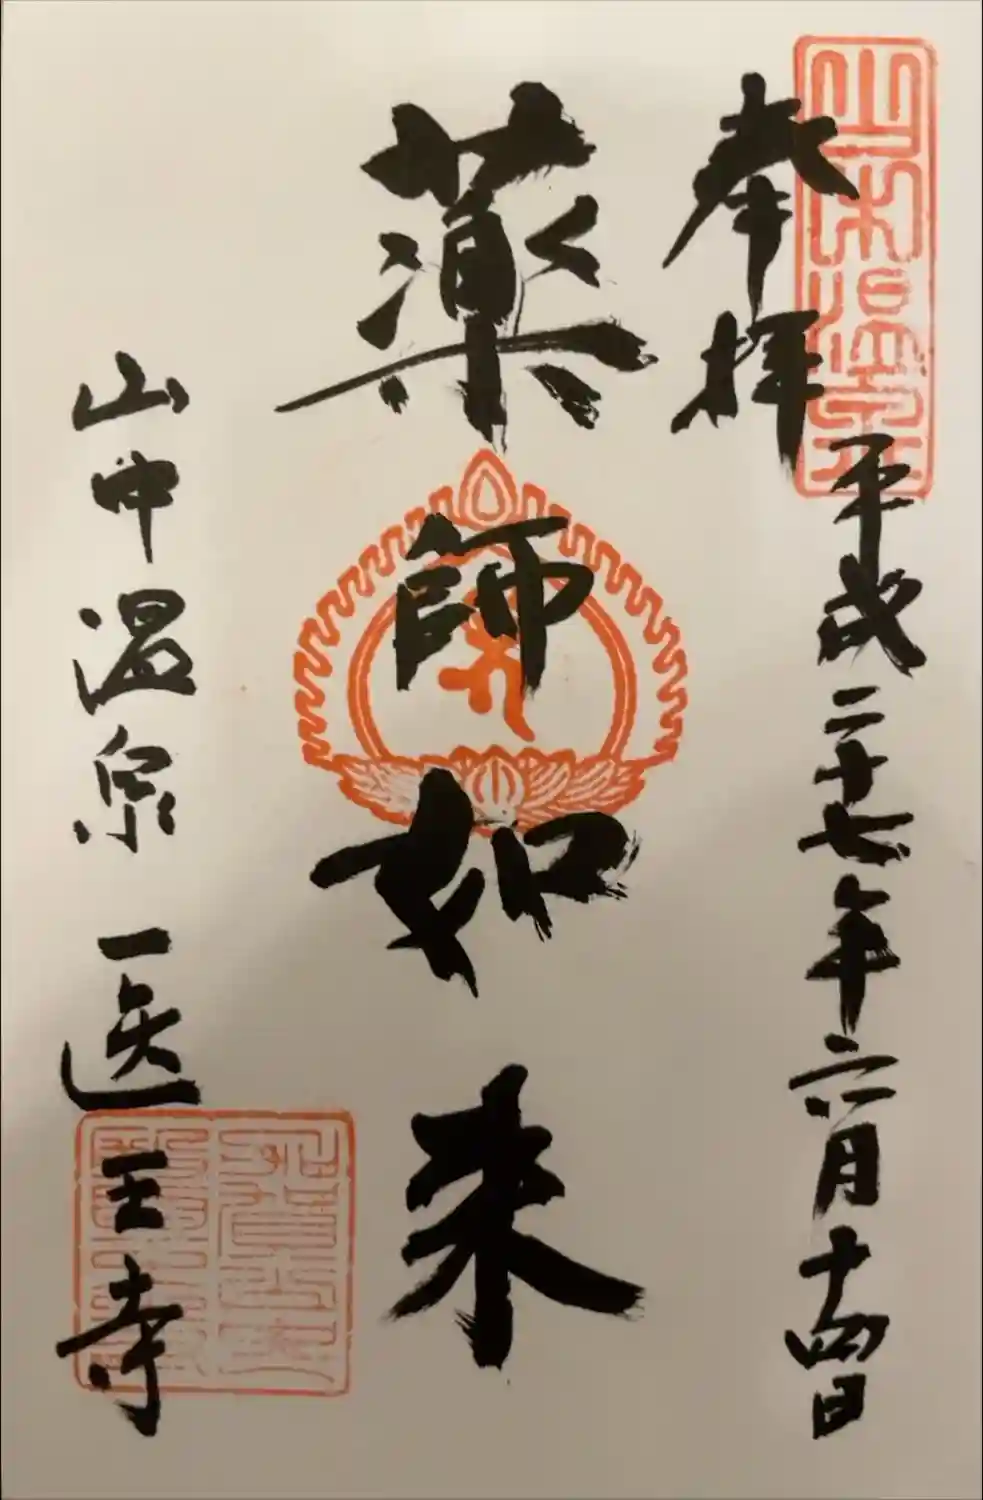 奉拝
平成二十七年六月十四日
薬師如来
山中温泉 医王寺